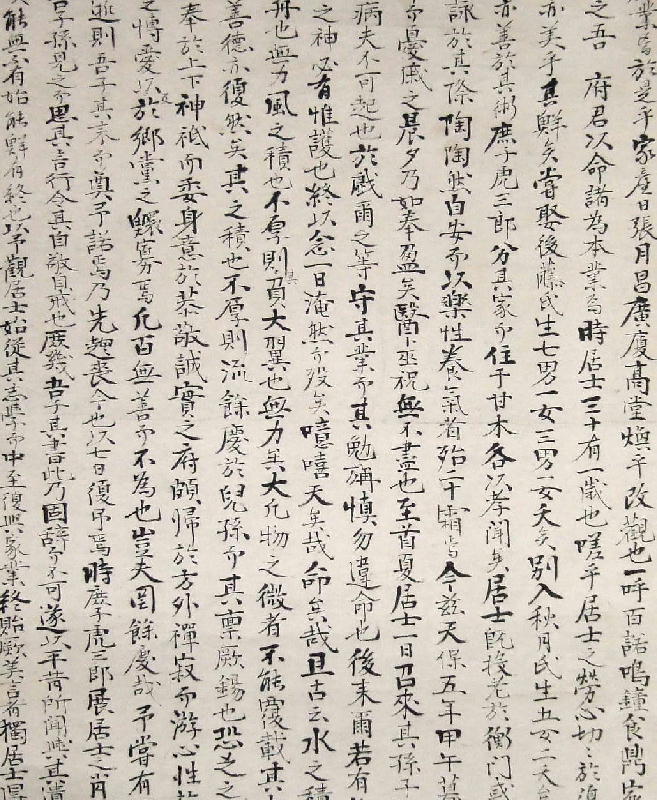 業焉於是乎家産日張月昌廣廈高堂煥乎改觀也一呼百諾鳴鐘食鼎家
之吾 府君以命諸為本業焉時居士三十有一歲也嗟乎居士之勞心切々於
亦美乎其鮮矣嘗娶後藤氏生七男一女三男一女夭矣別入秋月氏生五女二夭
亦善於其術庶子虎三郎分其家而住于甘木各以孝聞矣居士既投老於衡門或
詠於其際陶陶然自安而以樂性養氣者殆一十霜焉今茲天保五年甲午莫
而憂戚之晨夕乃如奉盈矣醫卜巫祝無不盡也至首夏居士一日召來其孫子
病夫不可起也於戲爾之等守其業而其勉旃慎勿違命也後来爾若有
之神必有惟護也終以念一日淹然而歿矣噫嘻天矣哉命矣哉且古云水之積
舟也無力風之積也不厚則其負大翼也無力矣大凡物之微者不能覆載其
善德亦復然矣其之積也不厚則流餘慶於兒孫而其稟厥錫也恐
奉於上下神祇而委身意於恭敬誠實之府頗歸於方外禪寂而游心性於
之博愛以及於鄉黨之鰥寡焉凡百無善而不為也豈夫罔餘慶哉予嘗有
逝則吾子其来而奠予諾焉乃先趣喪今也以七日復吊焉時庶子虎三郎展居士之肖
吾子孫見之而思其言行令其自敬自戒也庶幾吾子其書此乃固辭而不可遂以平昔所聞與其
能無不有始能鮮有終也以予觀居士始從其志學而中至復興家業終貽厥美言者獨居士